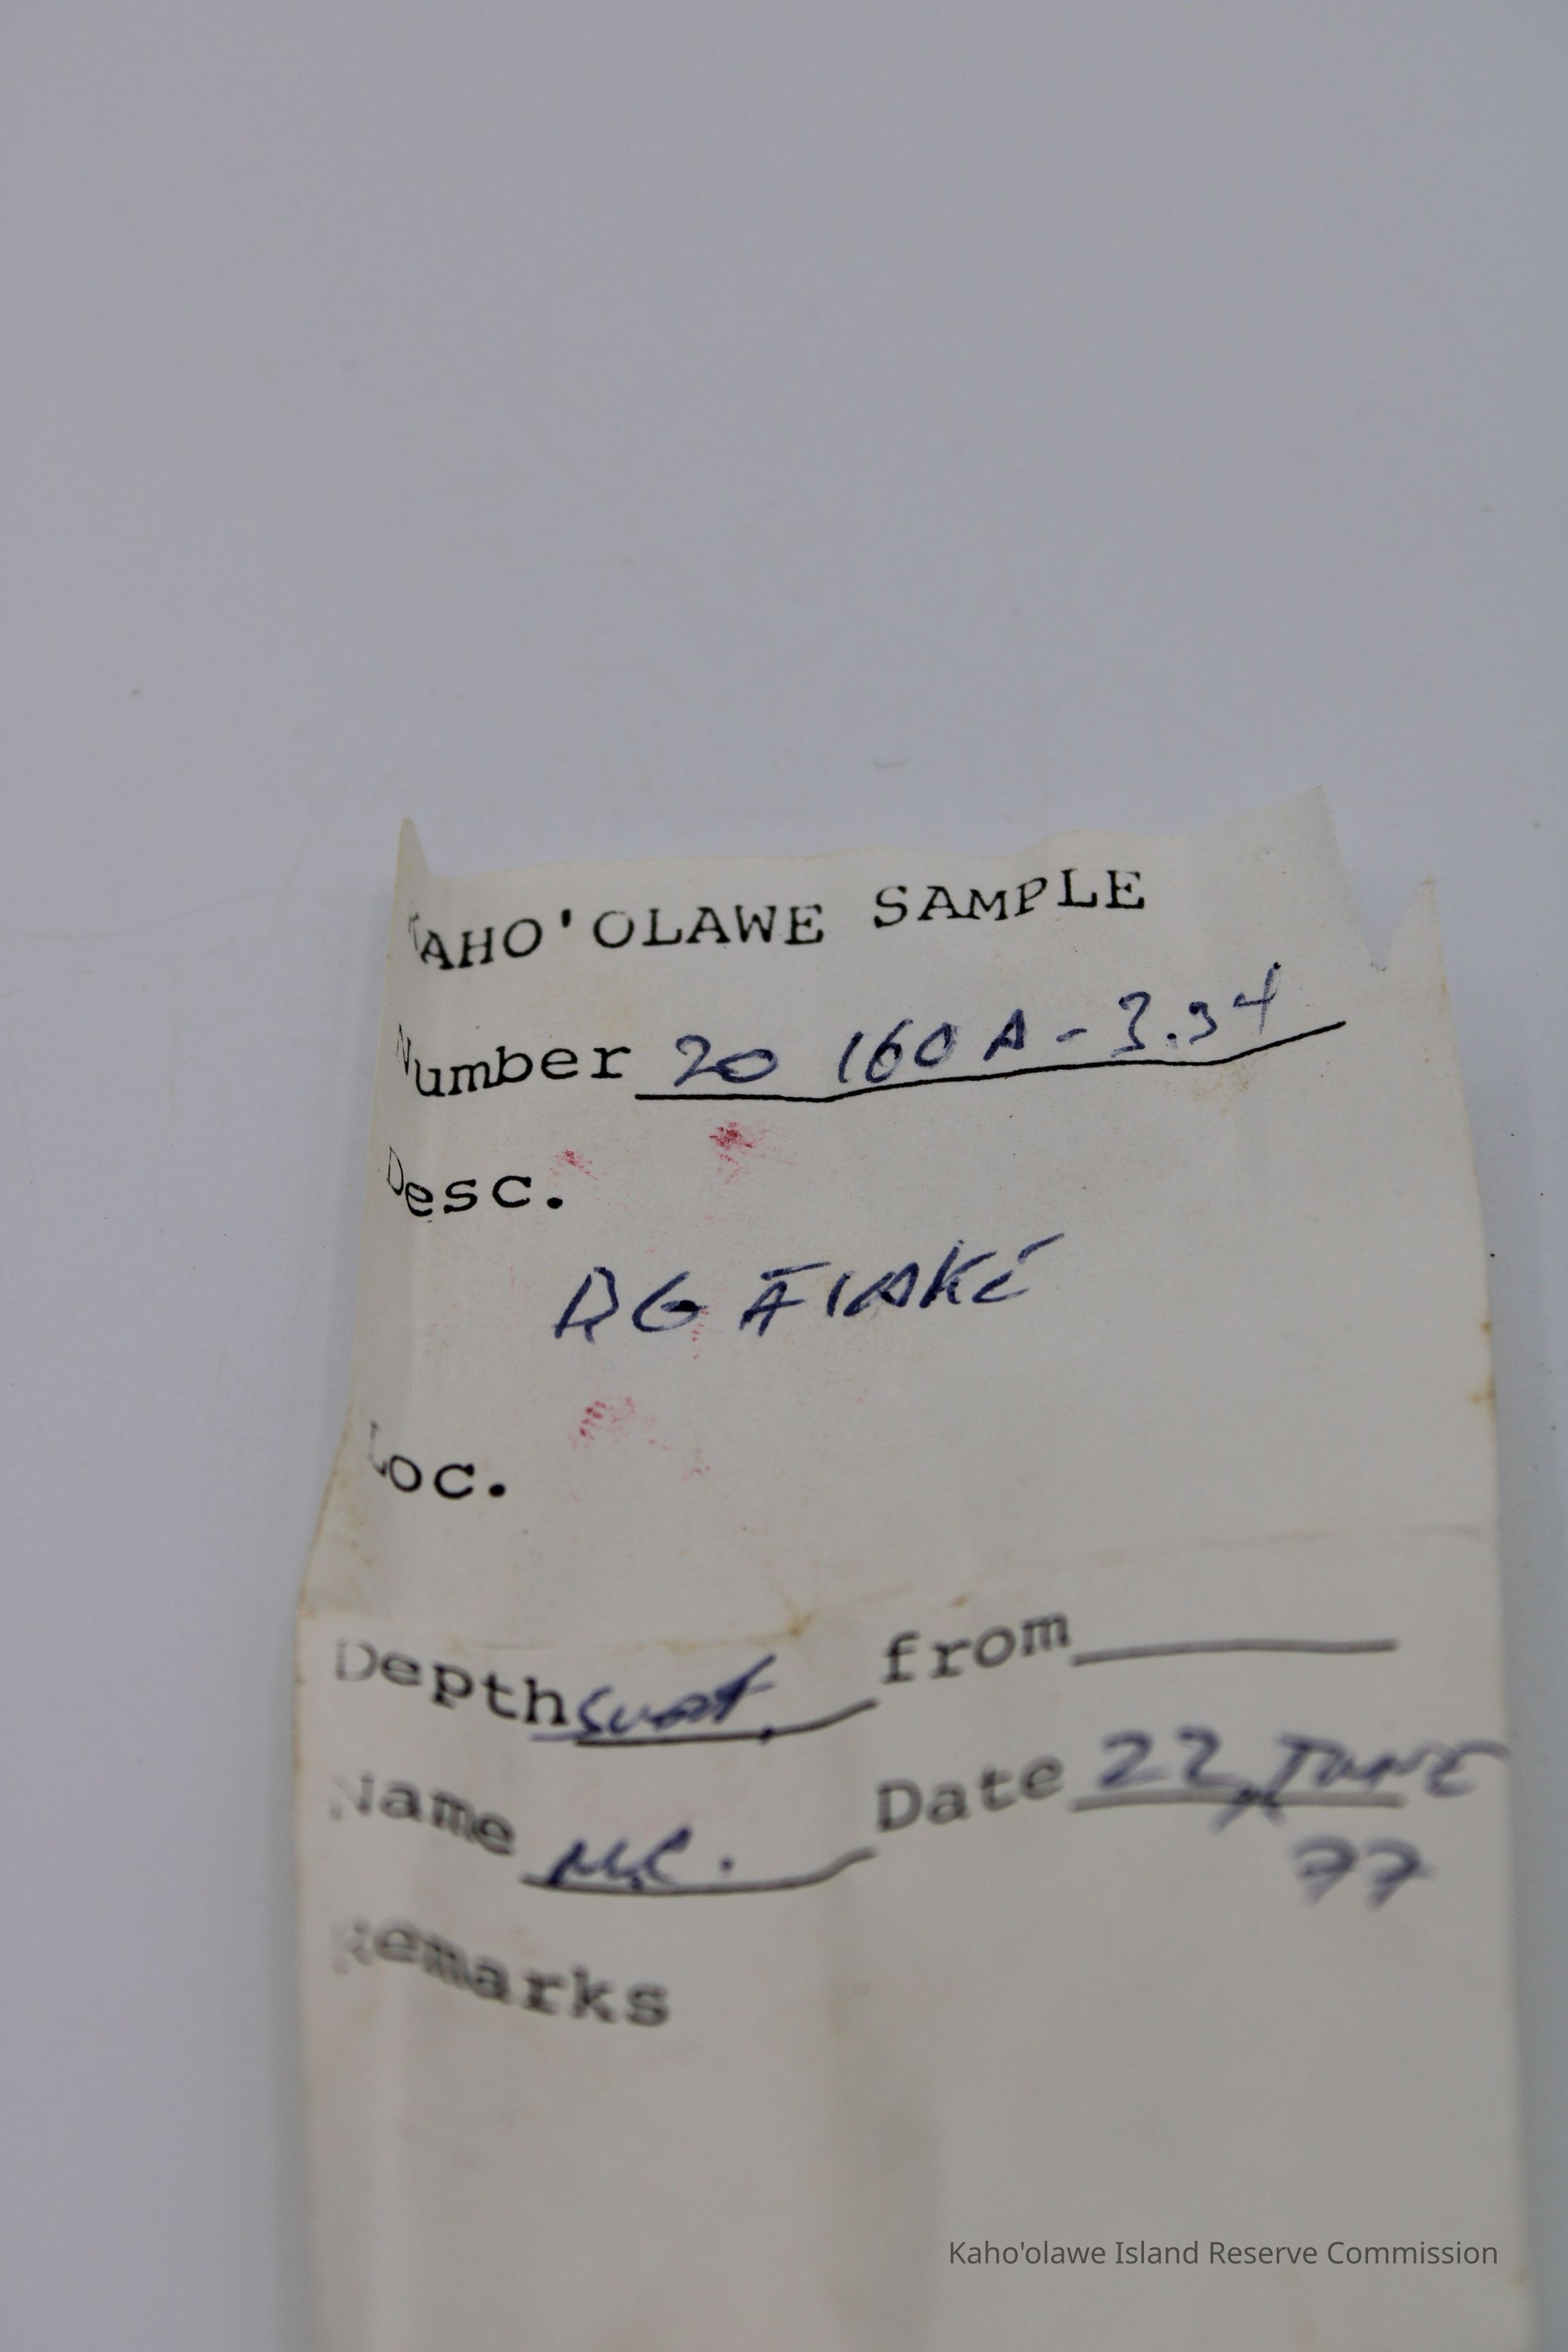 KAHO'OLAWE SAMPLE
Number 20 160A-3.34
Desc.
BG FLAKE
Loc.
Depth surf. from
Name M.C. Date 22 JUNE
77
Remarks
Kaho'olawe Island Reserve Commission